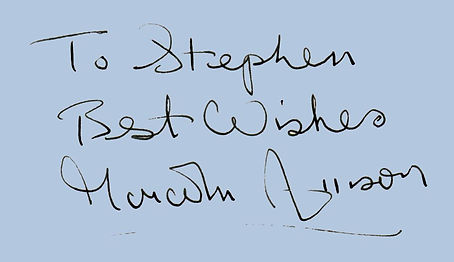 To Stephen
Best Wishes
Malcolm Allison